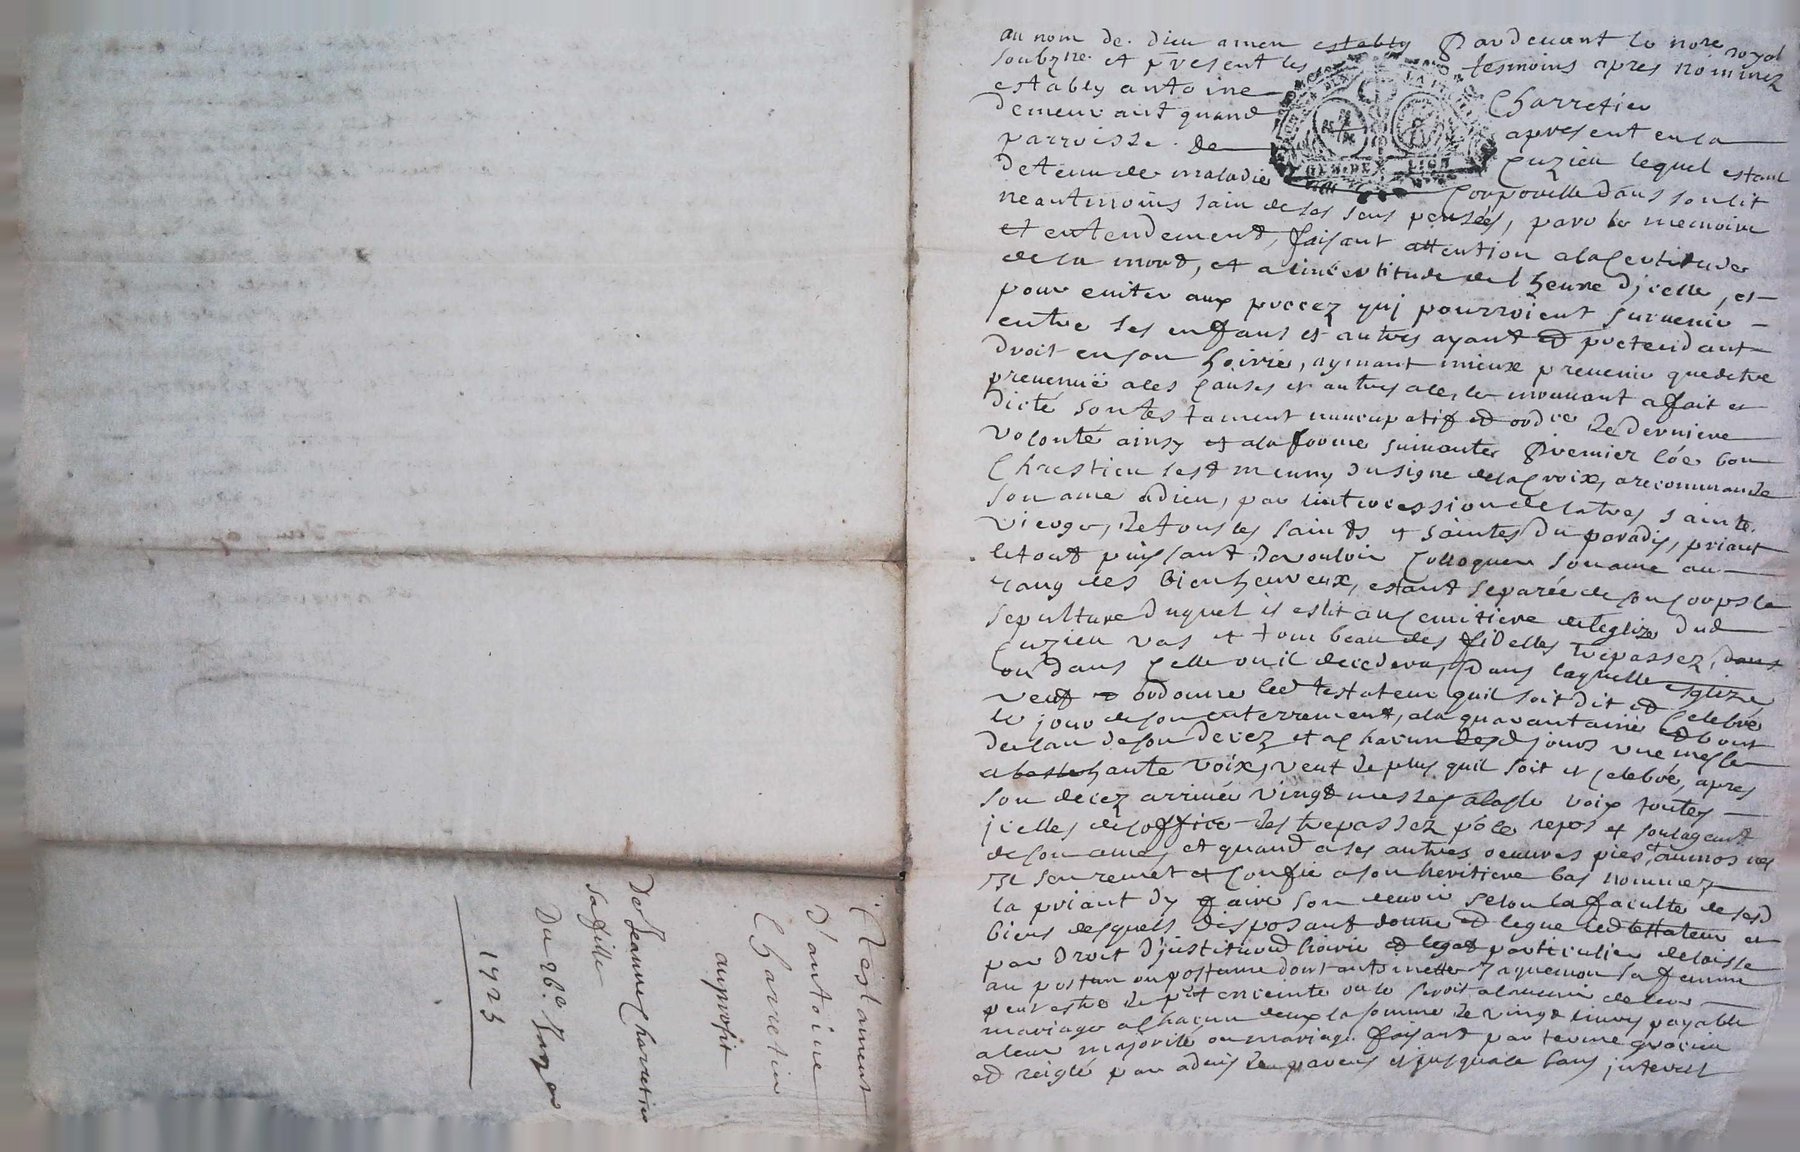 au nom de dieu amen estably Pardevant le nore royal
soubzne et present les tesmoins apres nommez
estably antoine Charretier
demeurant quand apresent en la
parroisse de Cuzieu lequel estant
detenu de maladie Corporelle dans son lit
neantmoins sain de ses sens pensées, parolle memoire
et entendement, faisant attention a la Certitude
de la mort, et a lincertitude de lheure dicelle, et
pour eviter aux procez quj pourroient survenir
entre ses enfans et autres ayant et pretendant
droit en son hoirie, aymant mieux prevenir que detre
prevenuë a ces Causes et autres a ce le mouvant a fait et
dicté son testament nuncupatif et ordre de derniere
volonté ainsy et a la forme suivante Premier Cõe bon
Chrestien sest muny du signe de la Croix, a recommandé
son ame a dieu, par lintercession de la tres sainte
vierge, de tous les saints et saintes du paradis, priant
le tout puissant de vouloir Colloquer son ame au
rang des bienheureux, estant separée de son Corps la
sepulture duquel il eslit au Cemitiere de leglize dud
Cuzieu vas et tombeau des fidelles trepassez, dans
ou dans Celle ou il decedera, dans laquelle eglize
veut et ordonne led testateur quil soit dit et Celebré
le jour de son enterrement, a la quarantaine et bout
de lan de son decez et a Chacun desd jours une messe
a basse haute voix, veut de plus quil soit et Celebré, apres
son decez arrivée vingt messes a basse voix toutes
jcelles de loffice des trepassez põ le repos et soulagemt
de son ame, et quand a ses autres oeuvres pies et aumosnes
Il sen remet et Confie a son heritiere bas nommez
la priant dy faire son devoir selon la faculté de sesd
biens desquels disposant donne et legue led testateur et
par droit djnstitution hoirie et legat particulier delaisse
au postume ou postume dont antoinette Jaquemon sa femme
peut estre de pnt enceinte ou le seroit a lavenir de leur
mariage a Chacun deux la somme de vingt livres payable
a leur majorité ou mariage faisant par terme gracieux
et reiglé par advis de parens et jusqua ce sans jnterest
Testament
d'antoine
Charretier
au profit
De Jeanne Charretier
sa fille
Du 26e
1723